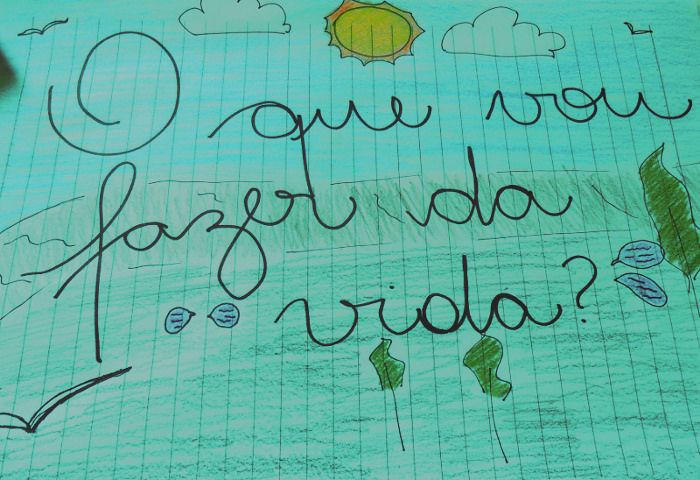 O que vou
fazer da
vida?